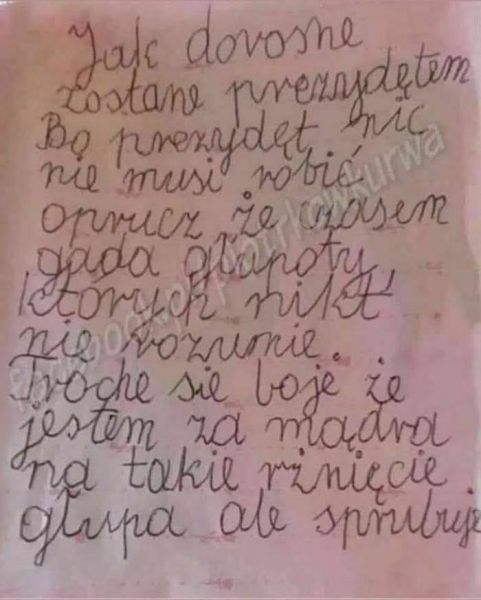 Jak dorosne
zostane prezydętem
Bo prezydęt nic
nie musi robić
oprucz że czasem
gada głupoty
których nikt
nie rozumie.
Troche sie boje że
jestem za mądra
na takie rżnięcie
głupa ale sprubuje